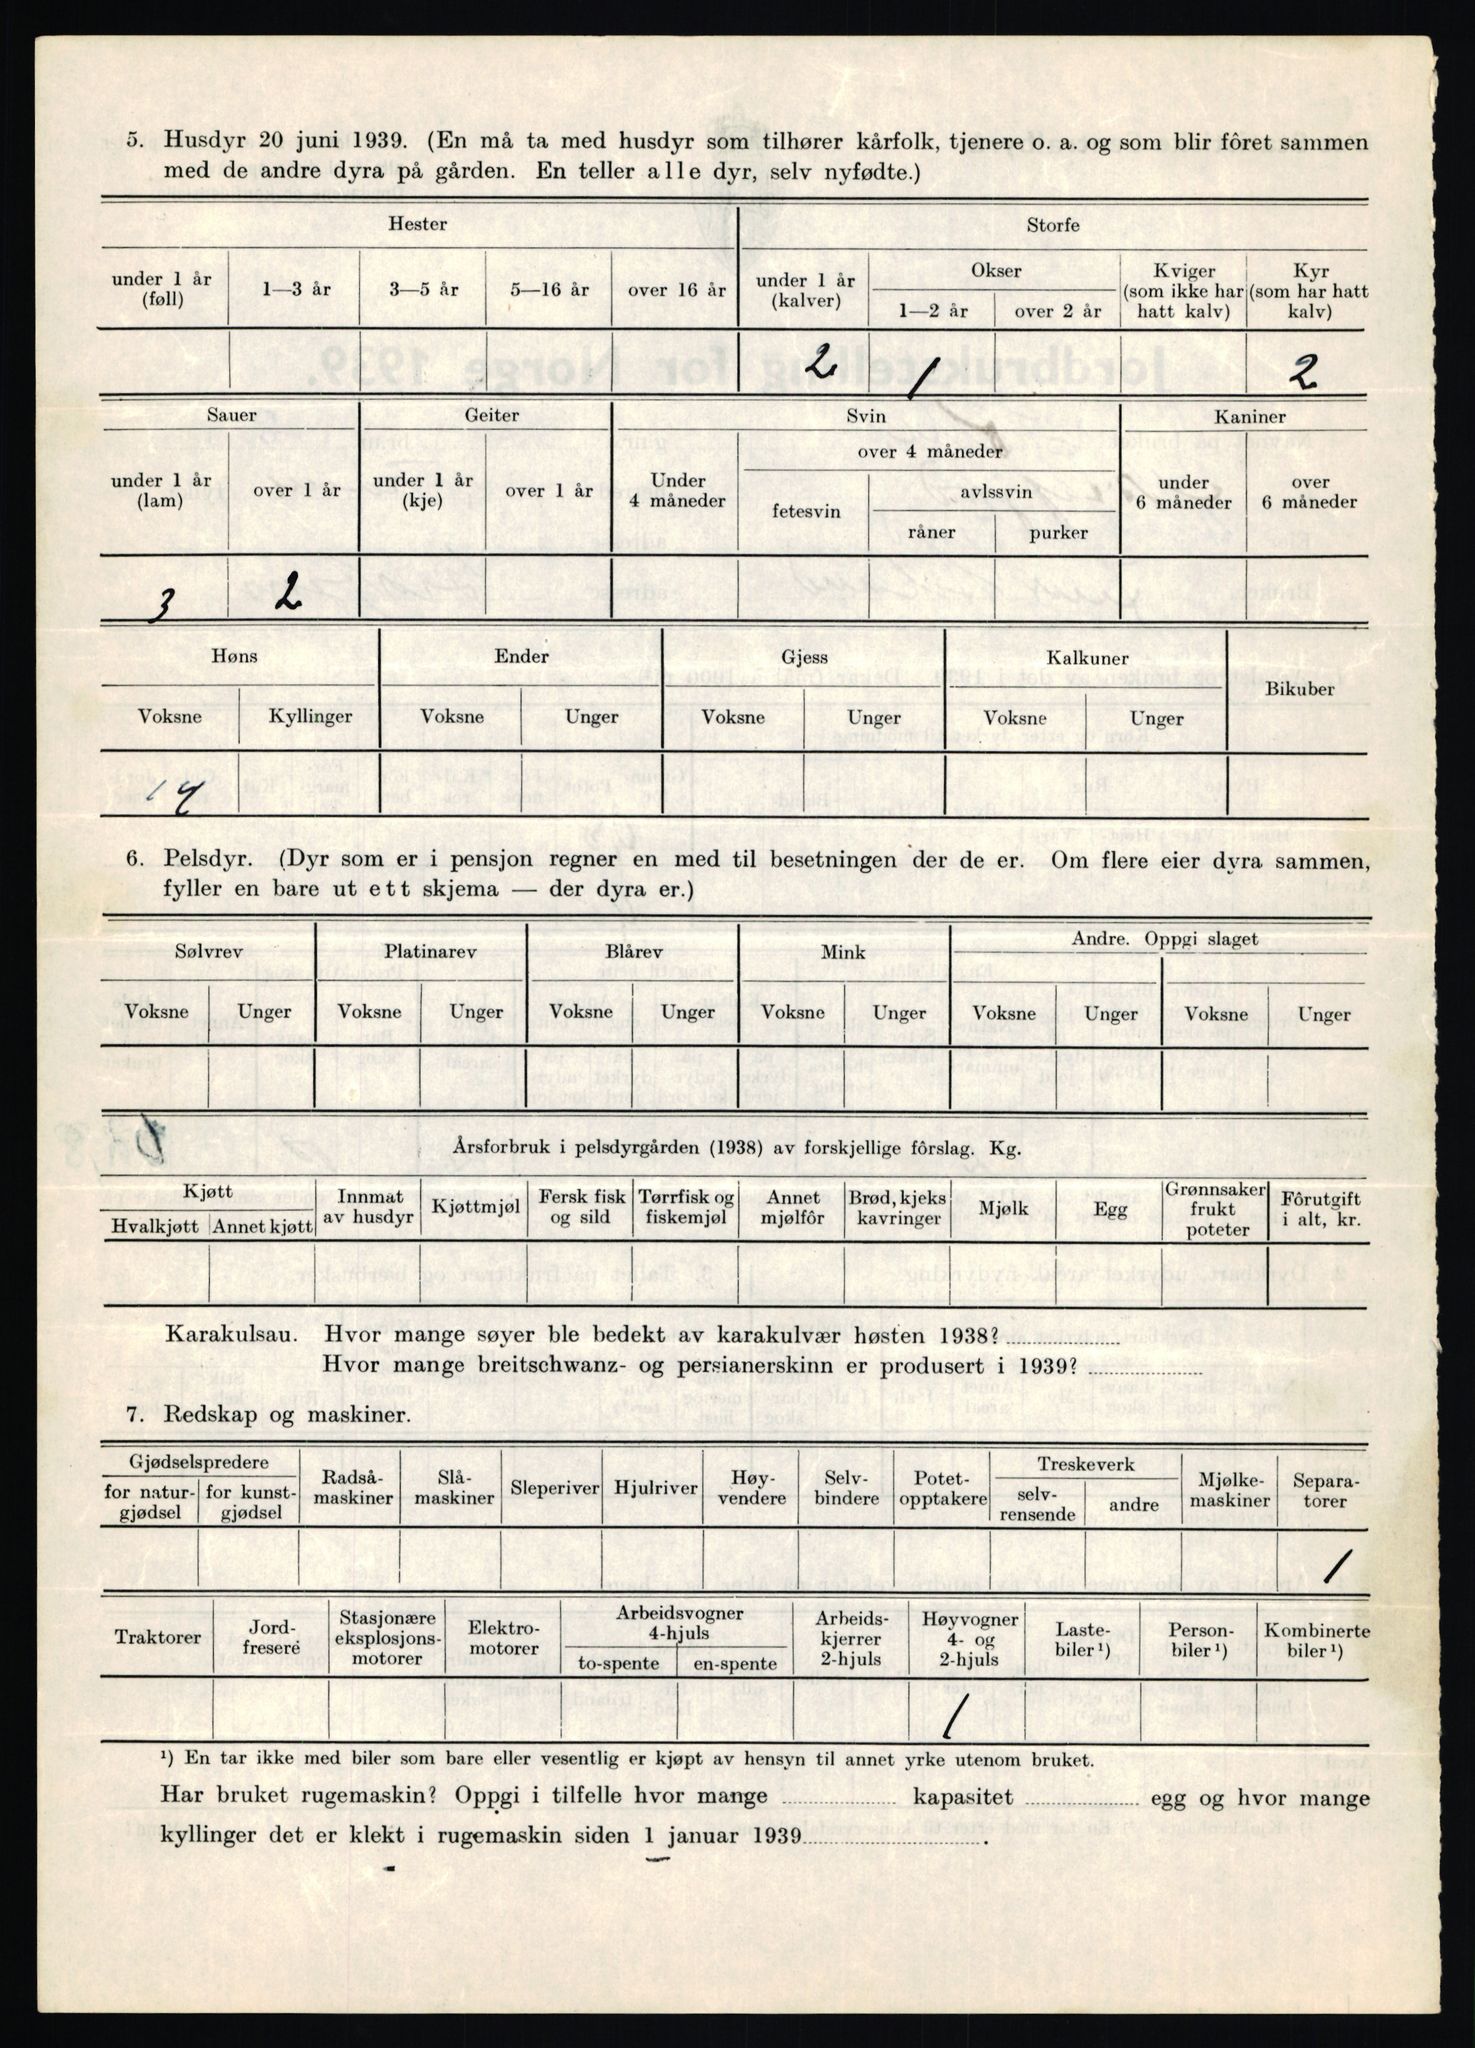 5. Husdyr 20 juni 1939. (En må ta med husdyr som tilhører kårfolk, tjenere o. a. og som blir fôret sammen
med de andre dyra på gården. En teller alle dyr, selv nyfødte.)
Hester Storfe
under 1 år (føll) 1—3 år 3—5 år 5—16 år over 16 år under 1 år (kalver) Okser 1—2 år over 2 år Kviger (som ikke har hatt kalv) Kyr (som har hatt kalv)
2 1 2
Sauer Geiter Svin Kaniner
under 1 år (lam) over 1 år under 1 år (kje) over 1 år Under 4 måneder over 4 måneder fetesvin avlssvin råner purker under 6 måneder over 6 måneder
3 2
Høns Ender Gjess Kalkuner Bikuber
Voksne Kyllinger Voksne Unger Voksne Unger Voksne Unger
14
6. Pelsdyr. (Dyr som er i pensjon regner en med til besetningen der de er. Om flere eier dyra sammen,
fyller en bare ut ett skjema — der dyra er.)
Sølvrev Platinarev Blårev Mink Andre. Oppgi slaget
Voksne Unger Voksne Unger Voksne Unger Voksne Unger Voksne Unger Voksne Unger
Årsforbruk i pelsdyrgården (1938) av forskjellige fôrslag. Kg.
Kjøtt Hvalkjøtt Annet kjøtt Innmat av husdyr Kjøttmjøl Fersk fisk og sild Tørrfisk og fiskemjøl Annet mjølfôr Brød, kjeks kavringer Mjølk Egg Grønnsaker frukt poteter Fôrutgift i alt, kr.
Karakulsau. Hvor mange søyer ble bedekt av karakulvær høsten 1938?
Hvor mange breitschwanz- og persianerskinn er produsert i 1939?
7. Redskap og maskiner.
Gjødselspredere for natur-gjødsel for kunst-gjødsel Radså-maskiner Slå-maskiner Sleperiver Hjulriver Høy-vendere Selv-bindere Potet-opptakere Treskeverk selv-rensende andre Mjølke-maskiner Separa-torer
1
Traktorer Jord-fresere Stasjonære eksplosjons-motorer Elektro-motorer Arbeidsvogner 4-hjuls to-spente en-spente Arbeids-kjerrer 2-hjuls Høyvogner 4- og 2-hjuls Laste-biler ¹) Person-biler ¹) Kombinerte biler ¹)
1
¹) En tar ikke med biler som bare eller vesentlig er kjøpt av hensyn til annet yrke utenom bruket.
Har bruket rugemaskin? Oppgi i tilfelle hvor mange kapasitet egg og hvor mange
kyllinger det er klekt i rugemaskin siden 1 januar 1939 .